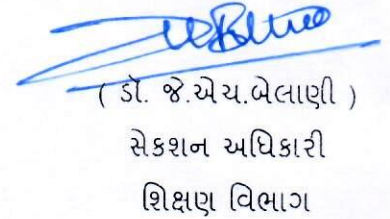 ( ડૉ. જે.એચ.બેલાણી )
સેકશન અધિકારી
શિક્ષણ વિભાગ